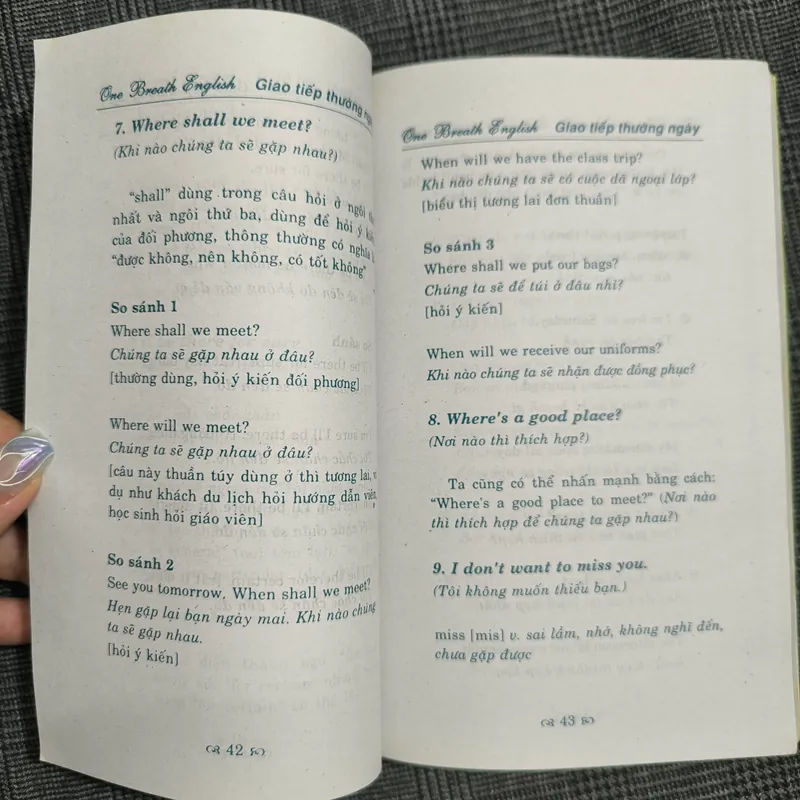 One Breath English Giao tiếp thường
7. Where shall we meet?
(Khi nào chúng ta sẽ gặp nhau?)
“shall” dùng trong câu hỏi ở ngôi
nhất và ngôi thứ ba, dùng để hỏi ý
của đối phương, thông thường có nghĩa
“được không, nên không, có tốt không”
So sánh 1
Where shall we meet?
Chúng ta sẽ gặp nhau ở đâu?
[thường dùng, hỏi ý kiến đối phương]
Where will we meet?
Chúng ta sẽ gặp nhau ở đâu?
[câu này thuần túy dùng ở thì tương lai,
dụ như khách du lịch hỏi hướng dẫn viên,
học sinh hỏi giáo viên]
So sánh 2
See you tomorrow. When shall we meet?
Hẹn gặp lại bạn ngày mai. Khi nào chúng
ta sẽ gặp nhau.
[hỏi ý kiến]
42
One Breath English Giao tiếp thường ngày
When will we have the class trip?
Khi nào chúng ta sẽ có cuộc dã ngoại lớp?
[biểu thị tương lai đơn thuần]
So sánh 3
Where shall we put our bags?
Chúng ta sẽ để túi ở đâu nhỉ?
[hỏi ý kiến]
When will we receive our uniforms?
Khi nào chúng ta sẽ nhận được đồng phục?
8. Where's a good place?
(Nơi nào thì thích hợp?)
Ta cũng có thể nhấn mạnh bằng cách:
“Where's a good place to meet?” (Nơi nào
thì thích hợp để chúng ta gặp nhau?)
9. I don't want to miss you.
(Tôi không muốn thiếu bạn.)
miss [mis] v. sai lầm, nhớ, không nghĩ đến,
chưa gặp được
43